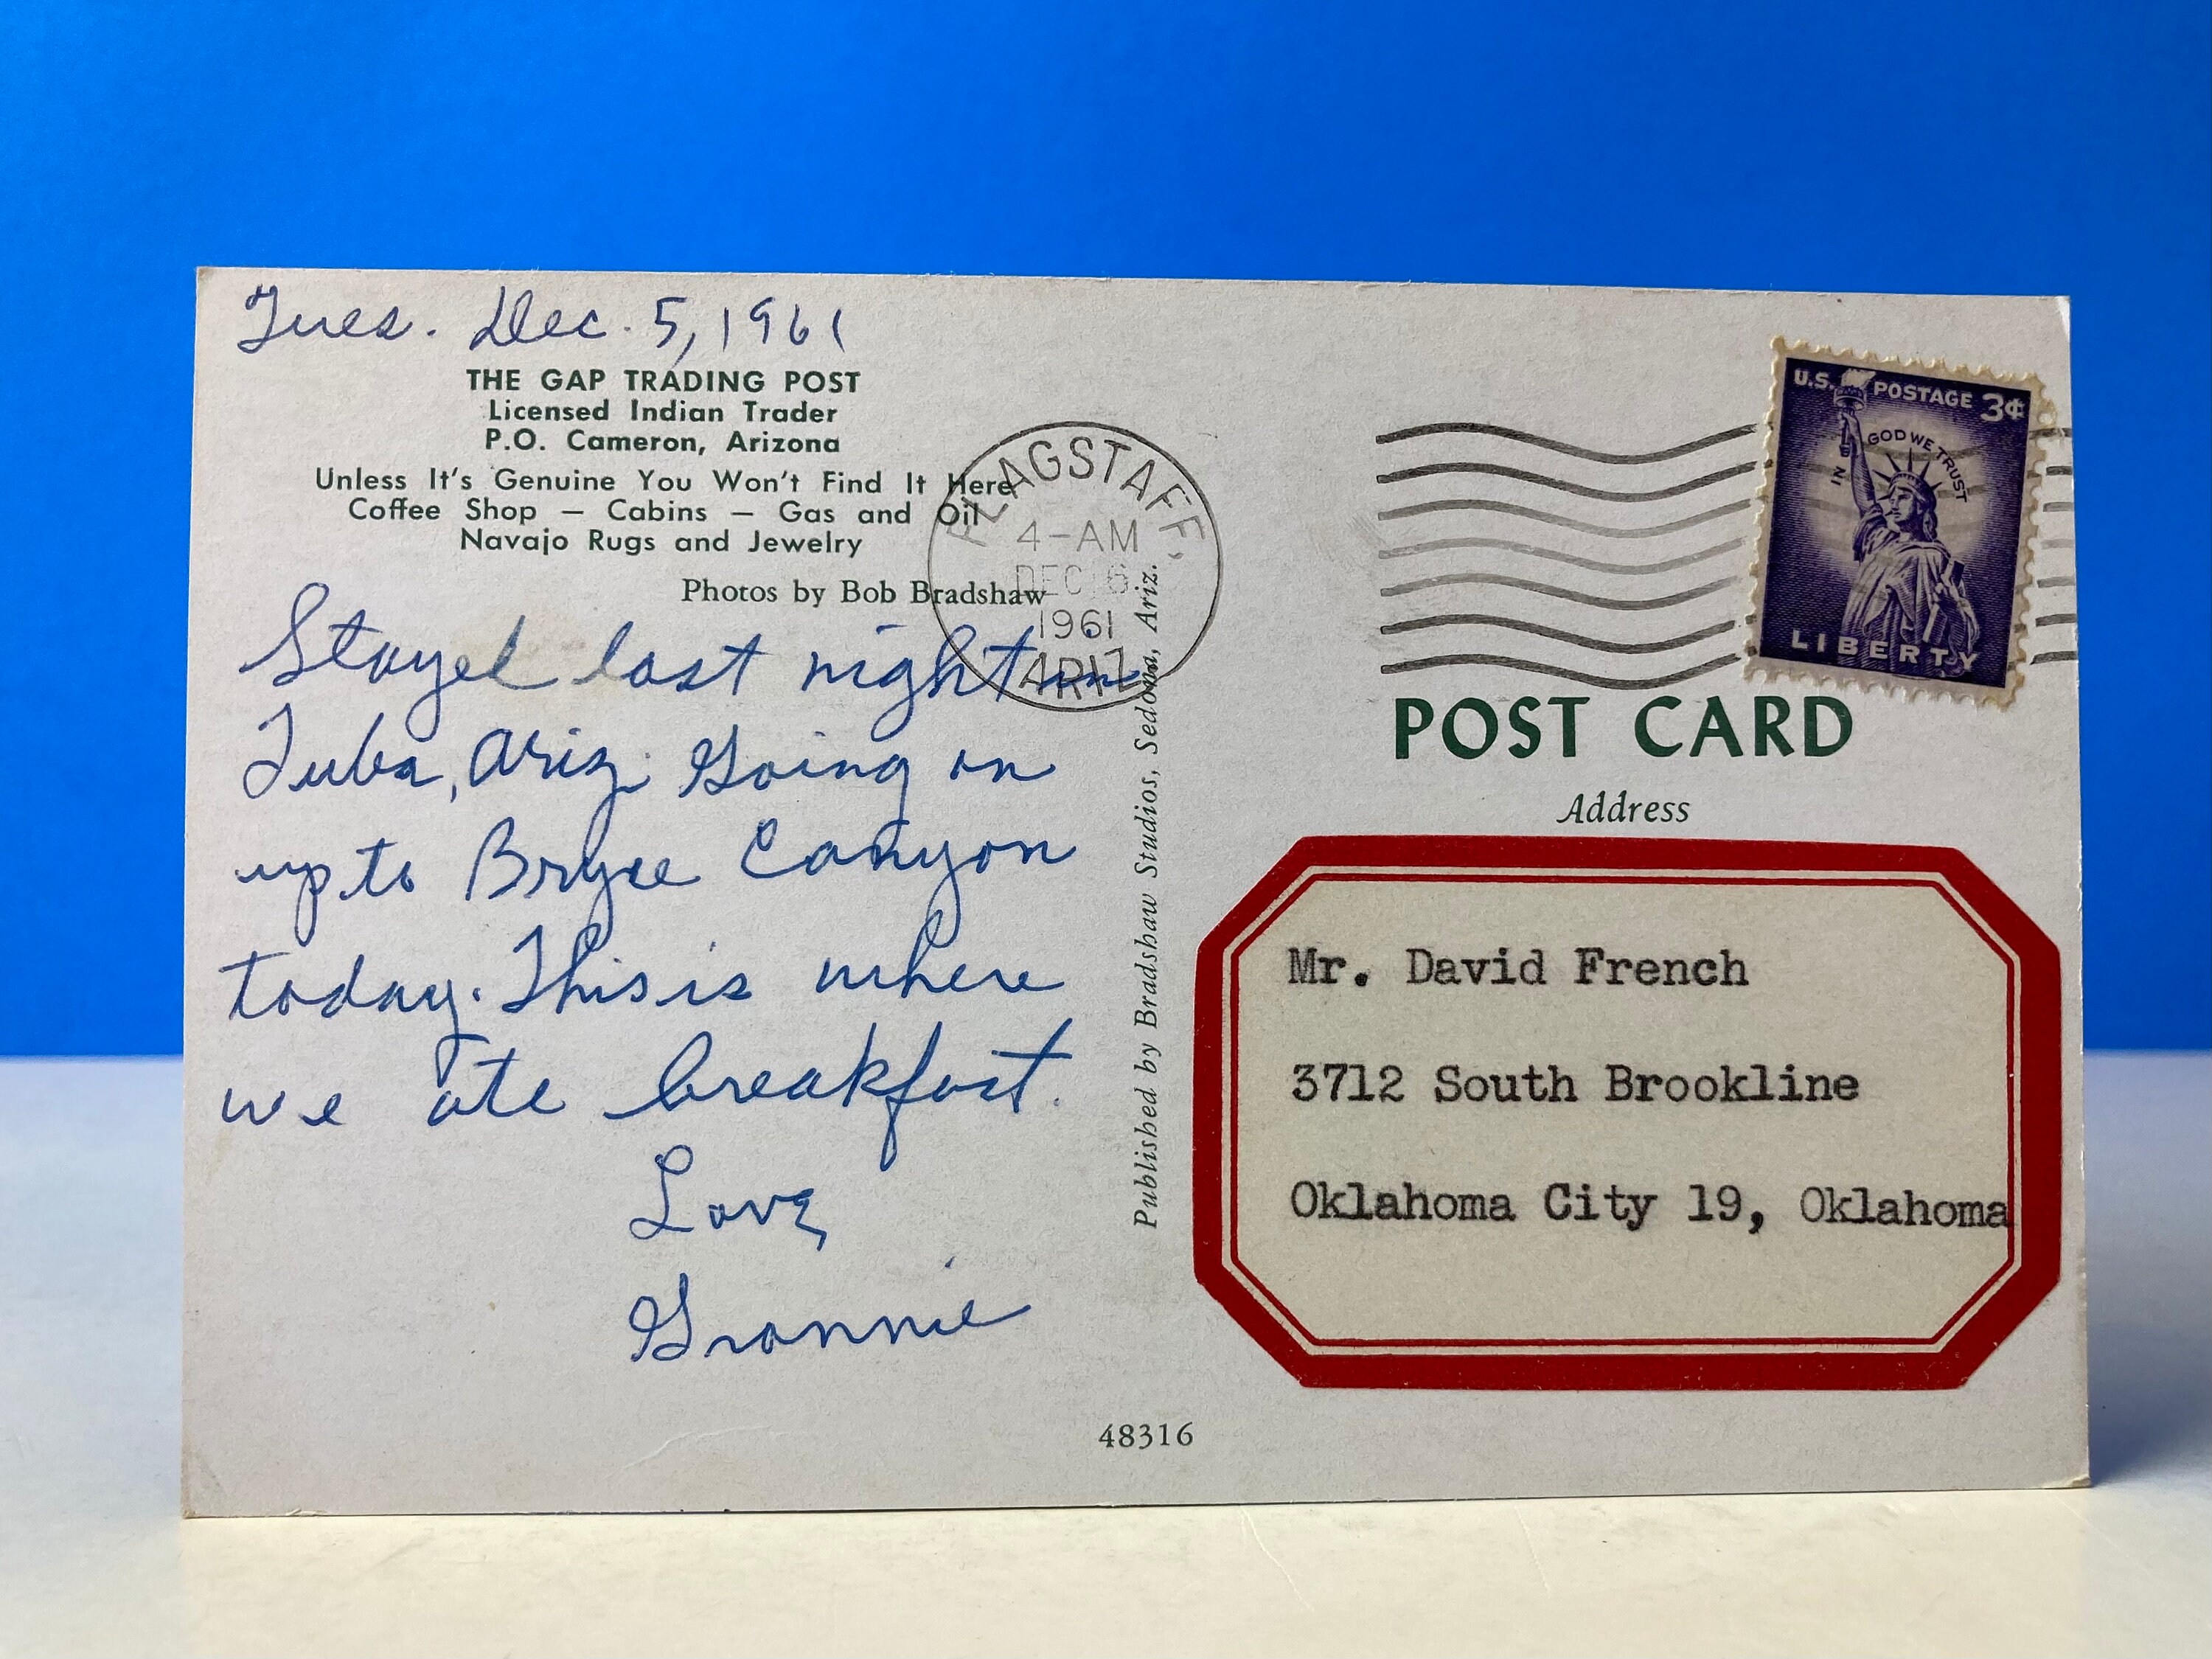 Tues. Dec. 5, 1961
THE GAP TRADING POST
Licensed Indian Trader
P.O. Cameron, Arizona
Unless It's Genuine You Won't Find It Here
Coffee Shop — Cabins — Gas and Oil
Navajo Rugs and Jewelry
Photos by Bob Bradshaw
Stayed last night in
Tuba, Ariz. Going on
up to Bryce Canyon
today. This is where
we ate breakfast.
Love,
Grannie
FLAGSTAFF,
4-AM
DEC 6
1961
ARIZ.
Published by Bradshaw Studios, Sedona, Ariz.
48316
U.S. POSTAGE 3¢
IN GOD WE TRUST
LIBERTY
POST CARD
Address
Mr. David French
3712 South Brookline
Oklahoma City 19, Oklahoma